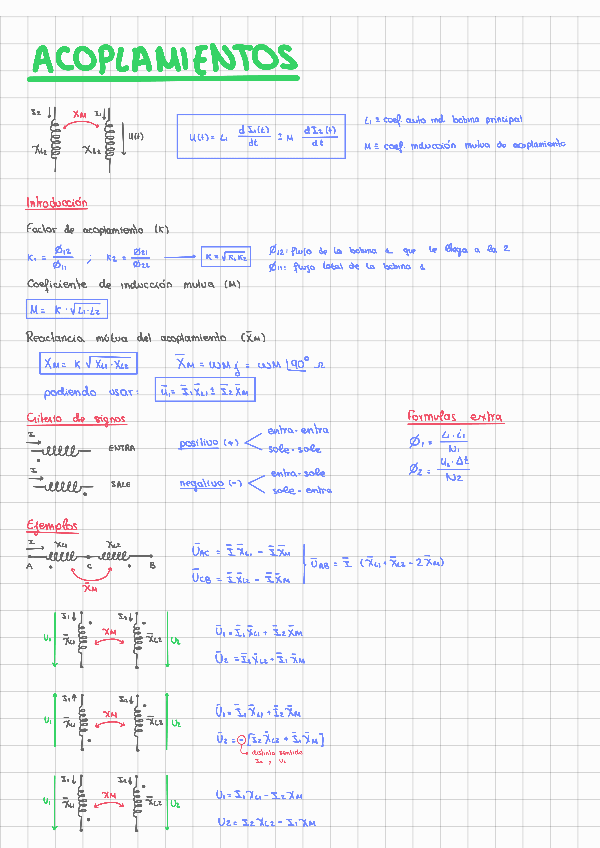 ACOPLAMIENTOS
I₂ ↓ X̄M I₁ ↓
XL2 XL1 U(t)
U(t) = L₁ dI₁(t)/dt ± M dI₂(t)/dt
L₁ ≡ coef. auto ind. bobina principal
M ≡ coef. inducción mutua de acoplamiento
Introducción
Factor de acoplamiento (K)
K₁ = Ø12/Ø11 ; K₂ = Ø21/Ø22 → K = √K₁K₂
Ø12: flujo de la bobina 1 que le llega a la 2
Ø11: flujo total de la bobina 1
Coeficiente de inducción mutua (M)
M = K · √L₁·L₂
Reactancia mútua del acoplamiento (X̄M)
XM = K √XL1·XL2
X̄M = ωM j = ωM |90° Ω
pudiendo usar: Ū₁ = Ī₁X̄L1 ± Ī₂X̄M
Criterio de signos
I
ENTRA
I
SALE
positivo (+)
entra-entra
sale-sale
negativo (-)
entra-sale
sale-entra
Formulas extra
Ø₁ = L₁·i₁/N₁
Ø₂ = U₂·Δt/N₂
Ejemplos
I X̄L1 X̄L2
A C B
X̄M
ŪAC = Ī X̄L1 - Ī X̄M
ŪCB = Ī X̄L2 - Ī X̄M
ŪAB = Ī (X̄L1 + X̄L2 - 2X̄M)
I₁ ↓ I₂ ↓
U₁ X̄L1 X̄M X̄L2 U₂
Ū₁ = Ī₁X̄L1 + Ī₂X̄M
Ū₂ = Ī₂X̄L2 + Ī₁X̄M
I₁ ↑ I₂ ↓
U₁ X̄L1 X̄M X̄L2 U₂
Ū₁ = Ī₁X̄L1 + Ī₂X̄M
Ū₂ = - [Ī₂X̄L2 + Ī₁X̄M]
distinto sentido
I₂ y U₂
I₁ ↓ I₂ ↓
U₁ X̄L1 X̄M X̄L2 U₂
U₁ = I₁XL1 - I₂XM
U₂ = I₂XL2 - I₁XM